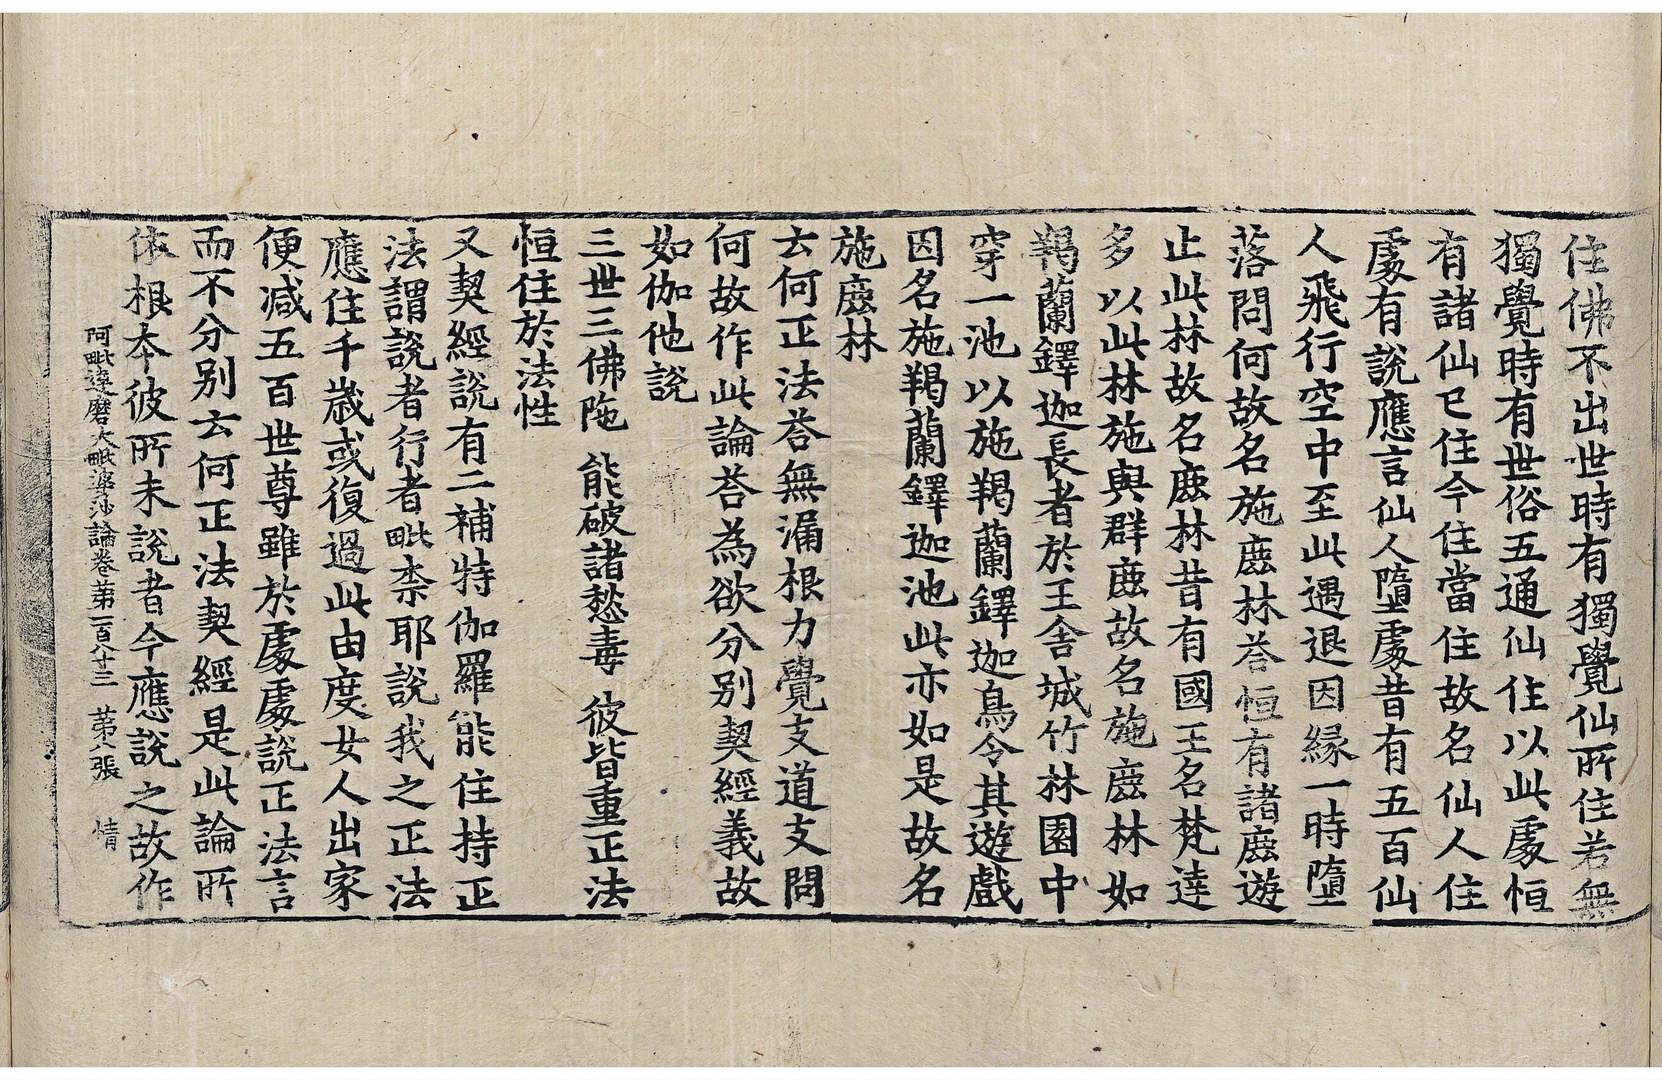 住佛不出世時有獨覺仙所住若無
獨覺時有世俗五通仙住以此處恒
有諸仙已住今住當住故名仙人住
處有說應言仙人墮處昔有五百仙
人飛行空中至此遇退因緣一時墮
落問何故名施鹿林荅恒有諸鹿遊
止此林故名鹿林昔有國王名梵達
多以此林施與群鹿故名施鹿林如
羯蘭鐸迦長者於王舍城竹林園中
穿一池以施羯蘭鐸迦鳥令其遊戲
因名施羯蘭鐸迦池此亦如是故名
施鹿林
云何正法荅無漏根力覺支道支問
何故作此論荅為欲分別契經義故
如伽他說
三世三佛陁 能破諸愁毒 彼皆重正法
恒住於法性
又契經說有二補特伽羅能住持正
法謂說者行者毗柰耶說我之正法
應住千歲或復過此由度女人出家
便減五百世尊雖於處處說正法言
而不分別云何正法契經是此論所
依根本彼所未說者今應說之故作
阿毗達磨大毗婆沙論卷苐一百八十三 苐八張 情